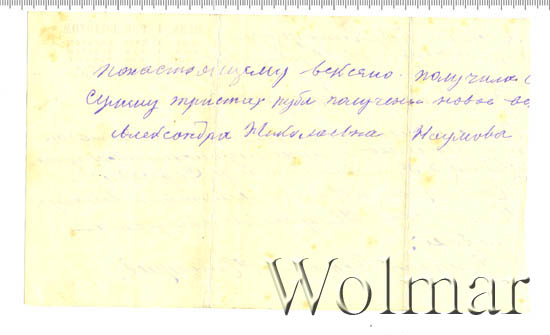 понастоящему векселю получила с
Сумму триста рубл получена новое ве
Александра Николаевна Наумова
Wolmar